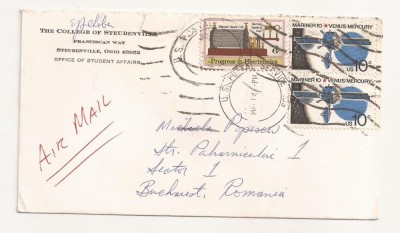 THE COLLEGE OF STEUBENVILLE
FRANCISCAN WAY
STEUBENVILLE, OHIO 43952
OFFICE OF STUDENT AFFAIRS
Progress in Electronics
6¢
MARINER 10 ★ VENUS/MERCURY
US 10c
MARINER 10 ★ VENUS/MERCURY
US 10c
U.S. POSTAL SERVICE
AIR MAIL
Michaela Popescu
Str. Paharnicului 1
Sector 1
Bucharest, Romania